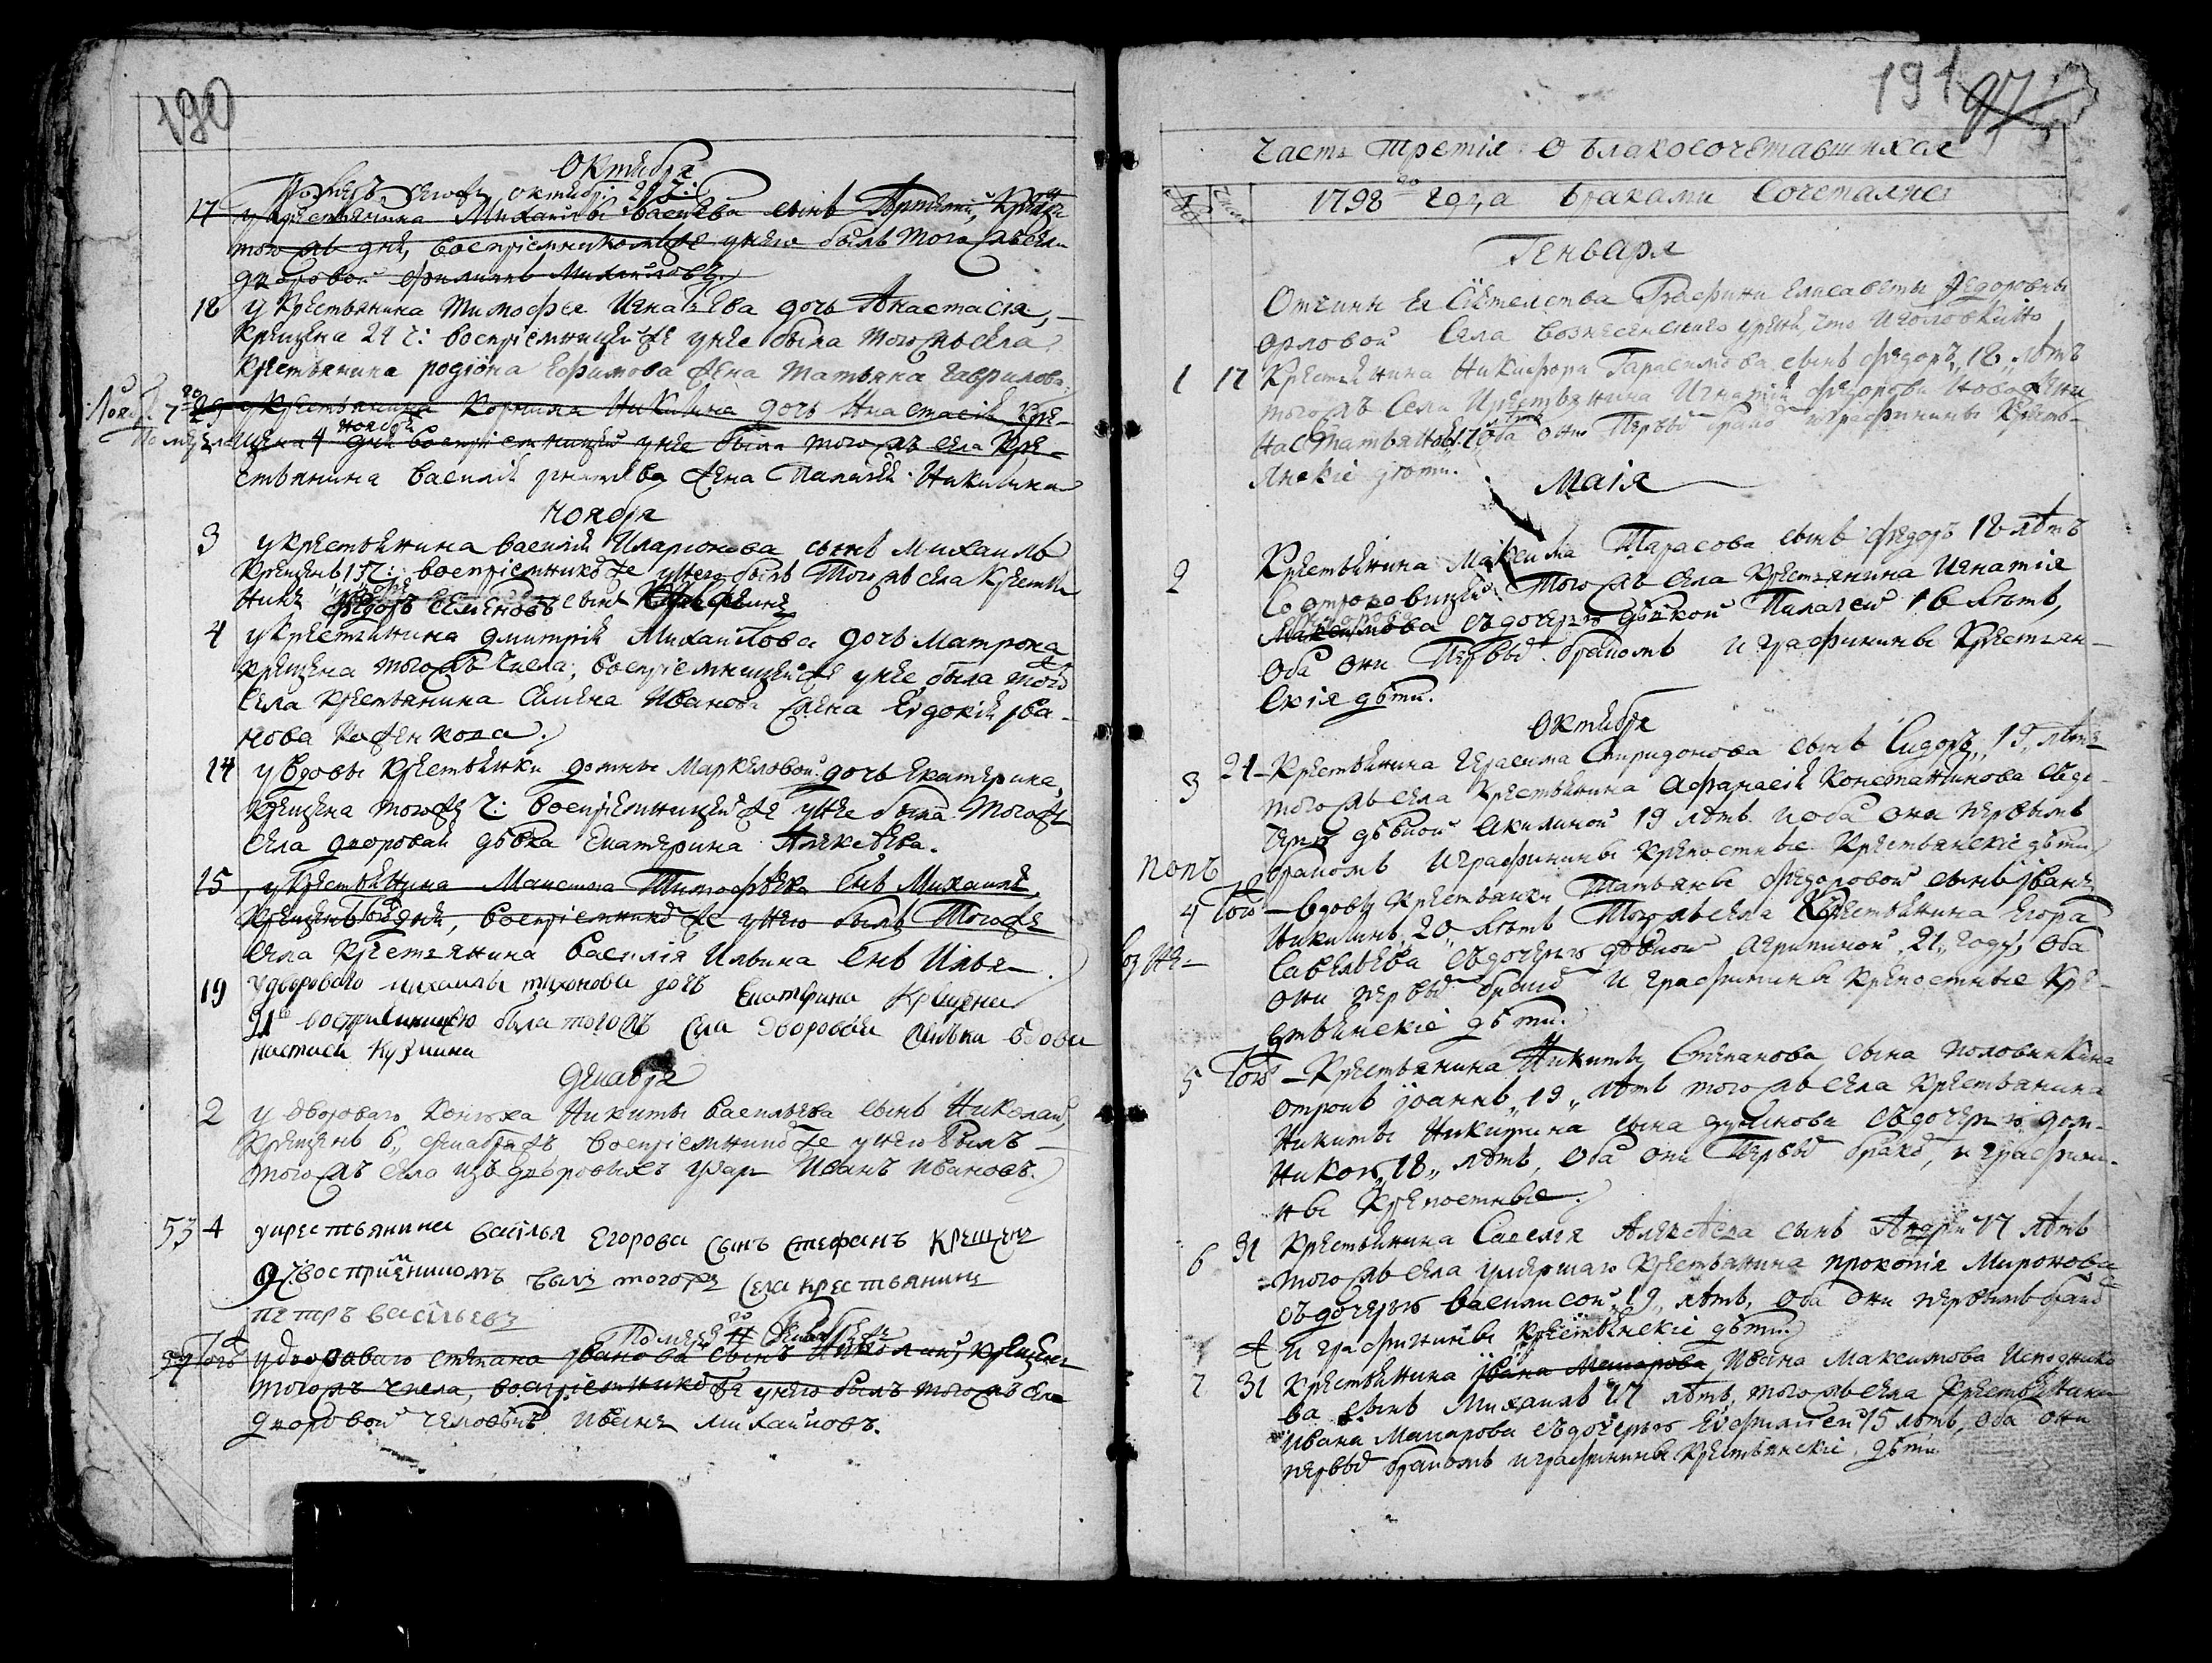 190
Октября
Померъ тогожъ октября 29 ч:
17 у крестьянина Михаилы васильева сынъ Артемий, крещенъ
того жъ дня, восприемникомъ же у него былъ того жъ села
дворовой Филипъ Михайловъ.
18 у крестьянина Тимофея Игнатьева дочь Анастасія,
крещена 24 ч: воспріемницей же у нее была того жъ села
крестьянина родіона Ефимова жена Татьяна Гаврилова
29 у крестьянина Корнила Никитина дочь Анастасія кре-
щена 4 ноября воспріемницей у нее была того жъ села кре-
стьянина василія жена Палагея Никитина
ноября
3 у крестьянина василія Иларіонова сынъ Михаилъ
крещенъ 15 ч: воспріемникъ же у него былъ того жъ села крестья-
нинъ Федоръ Семеновъ сынъ
4 у крестьянина дмитрія Михайлова дочь Матрона
крещена того жъ числа, воспріемницей же у нее была того
села крестьянина Семена Иванова жена Евдокія ива-
нова
14 у вдовы крестьянки домны Маркеловой дочь екатерина,
крещена того же ч: воспріемницей же у нее была того же
села дворовая дѣвка Екатерина Алексѣева.
15 у крестьянина Максима Тимофѣева снъ Михаилъ,
крещенъ того дня, воспріемникъ же у него былъ того же
села крестьянина василія Ильина снъ Илья
19 у двороваго михаилы тихонова дочь Екатерина крещена
21 восприемницею была того жъ села дворовая вдова
настасья Кузмина
декабря
2 у двороваго конюха Никиты васильева сынъ Николай,
крещенъ 6 декабря воспріемникъ же у него былъ
того жъ села изъ дворовыхъ Иванъ Ивановъ.
53 4 у крестьянина василья Егорова сынъ стефанъ крещенъ
9 ч восприемникомъ былъ тогожъ села крестьянинъ
петръ васильевъ
Померъ
того у двороваго степана иванова сынъ Николай, крещенъ
того жъ числа, воспріемникъ же у него былъ того жъ села
дворовой человѣкъ Иванъ Михайловъ.
191
97
Часть третія о бракосочетавшихся
1798 го года браками сочетались
Генваря
Отчины Ея Сіятелства Графини Елисаветы Федоровны
орловой села вознесенскаго
1 17 крестьянина Никифора Гарасимова сынъ Федоръ 18 лѣтъ
того жъ села крестьянина Игнатія Федорова
Татьяной 17 лѣтъ оба они первымъ бракомъ и графинины кресть-
янскіе дѣти.
Маія
2 Крестьянина Максима Тарасова сынъ Федоръ 18 лѣтъ
того жъ села крестьянина Игнатія
съ дочерью дѣвкой Палагеей 16 лѣтъ,
оба они первымъ бракомъ и графинины крестьян-
скія дѣти.
Октября
3 21 Крестьянина Герасима Спиридонова сынъ Сидоръ 19 лѣтъ
того жъ села крестьянина Афанасія Константинова съ до-
черью дѣвкой Акилиной 19 лѣтъ и оба они первымъ
бракомъ и графинины крепостные крестьянскіе дѣти
попъ
4 того вдовы крестьянки Татьяны Федоровой сынъ иванъ
Никитинъ 20 лѣтъ того жъ села крестьянина Егора
Савельева съ дочерью дѣвкой Агрипиной 21 году, оба
они первымъ бракомъ и графинины крепостные кре-
стьянскіе дѣти.
5 того Крестьянина Никиты Степанова сына половинкина
отрокъ іоаннъ 19 лѣтъ того жъ села крестьянина
Никиты Никитина сына съ дочерью дом-
никой 18 лѣтъ, оба они первымъ бракомъ, и графини-
ны крепостные.
6 31 Крестьянина Савелія Алексѣева сынъ Андрей 17 лѣтъ
того жъ села умершаго крестьянина прокопія Миронова
съ дочерью василисой 19 лѣтъ, оба они первымъ бракомъ
и графинины крестьянскіе дѣти.
7 31 Крестьянина Ивана Макарова Ивана Максимова
сынъ Михаилъ 17 лѣтъ, того жъ села крестьянина
Ивана Макарова съ дочерью Евфимией 15 лѣтъ, оба они
первымъ бракомъ и графинины крестьянскіе дѣти